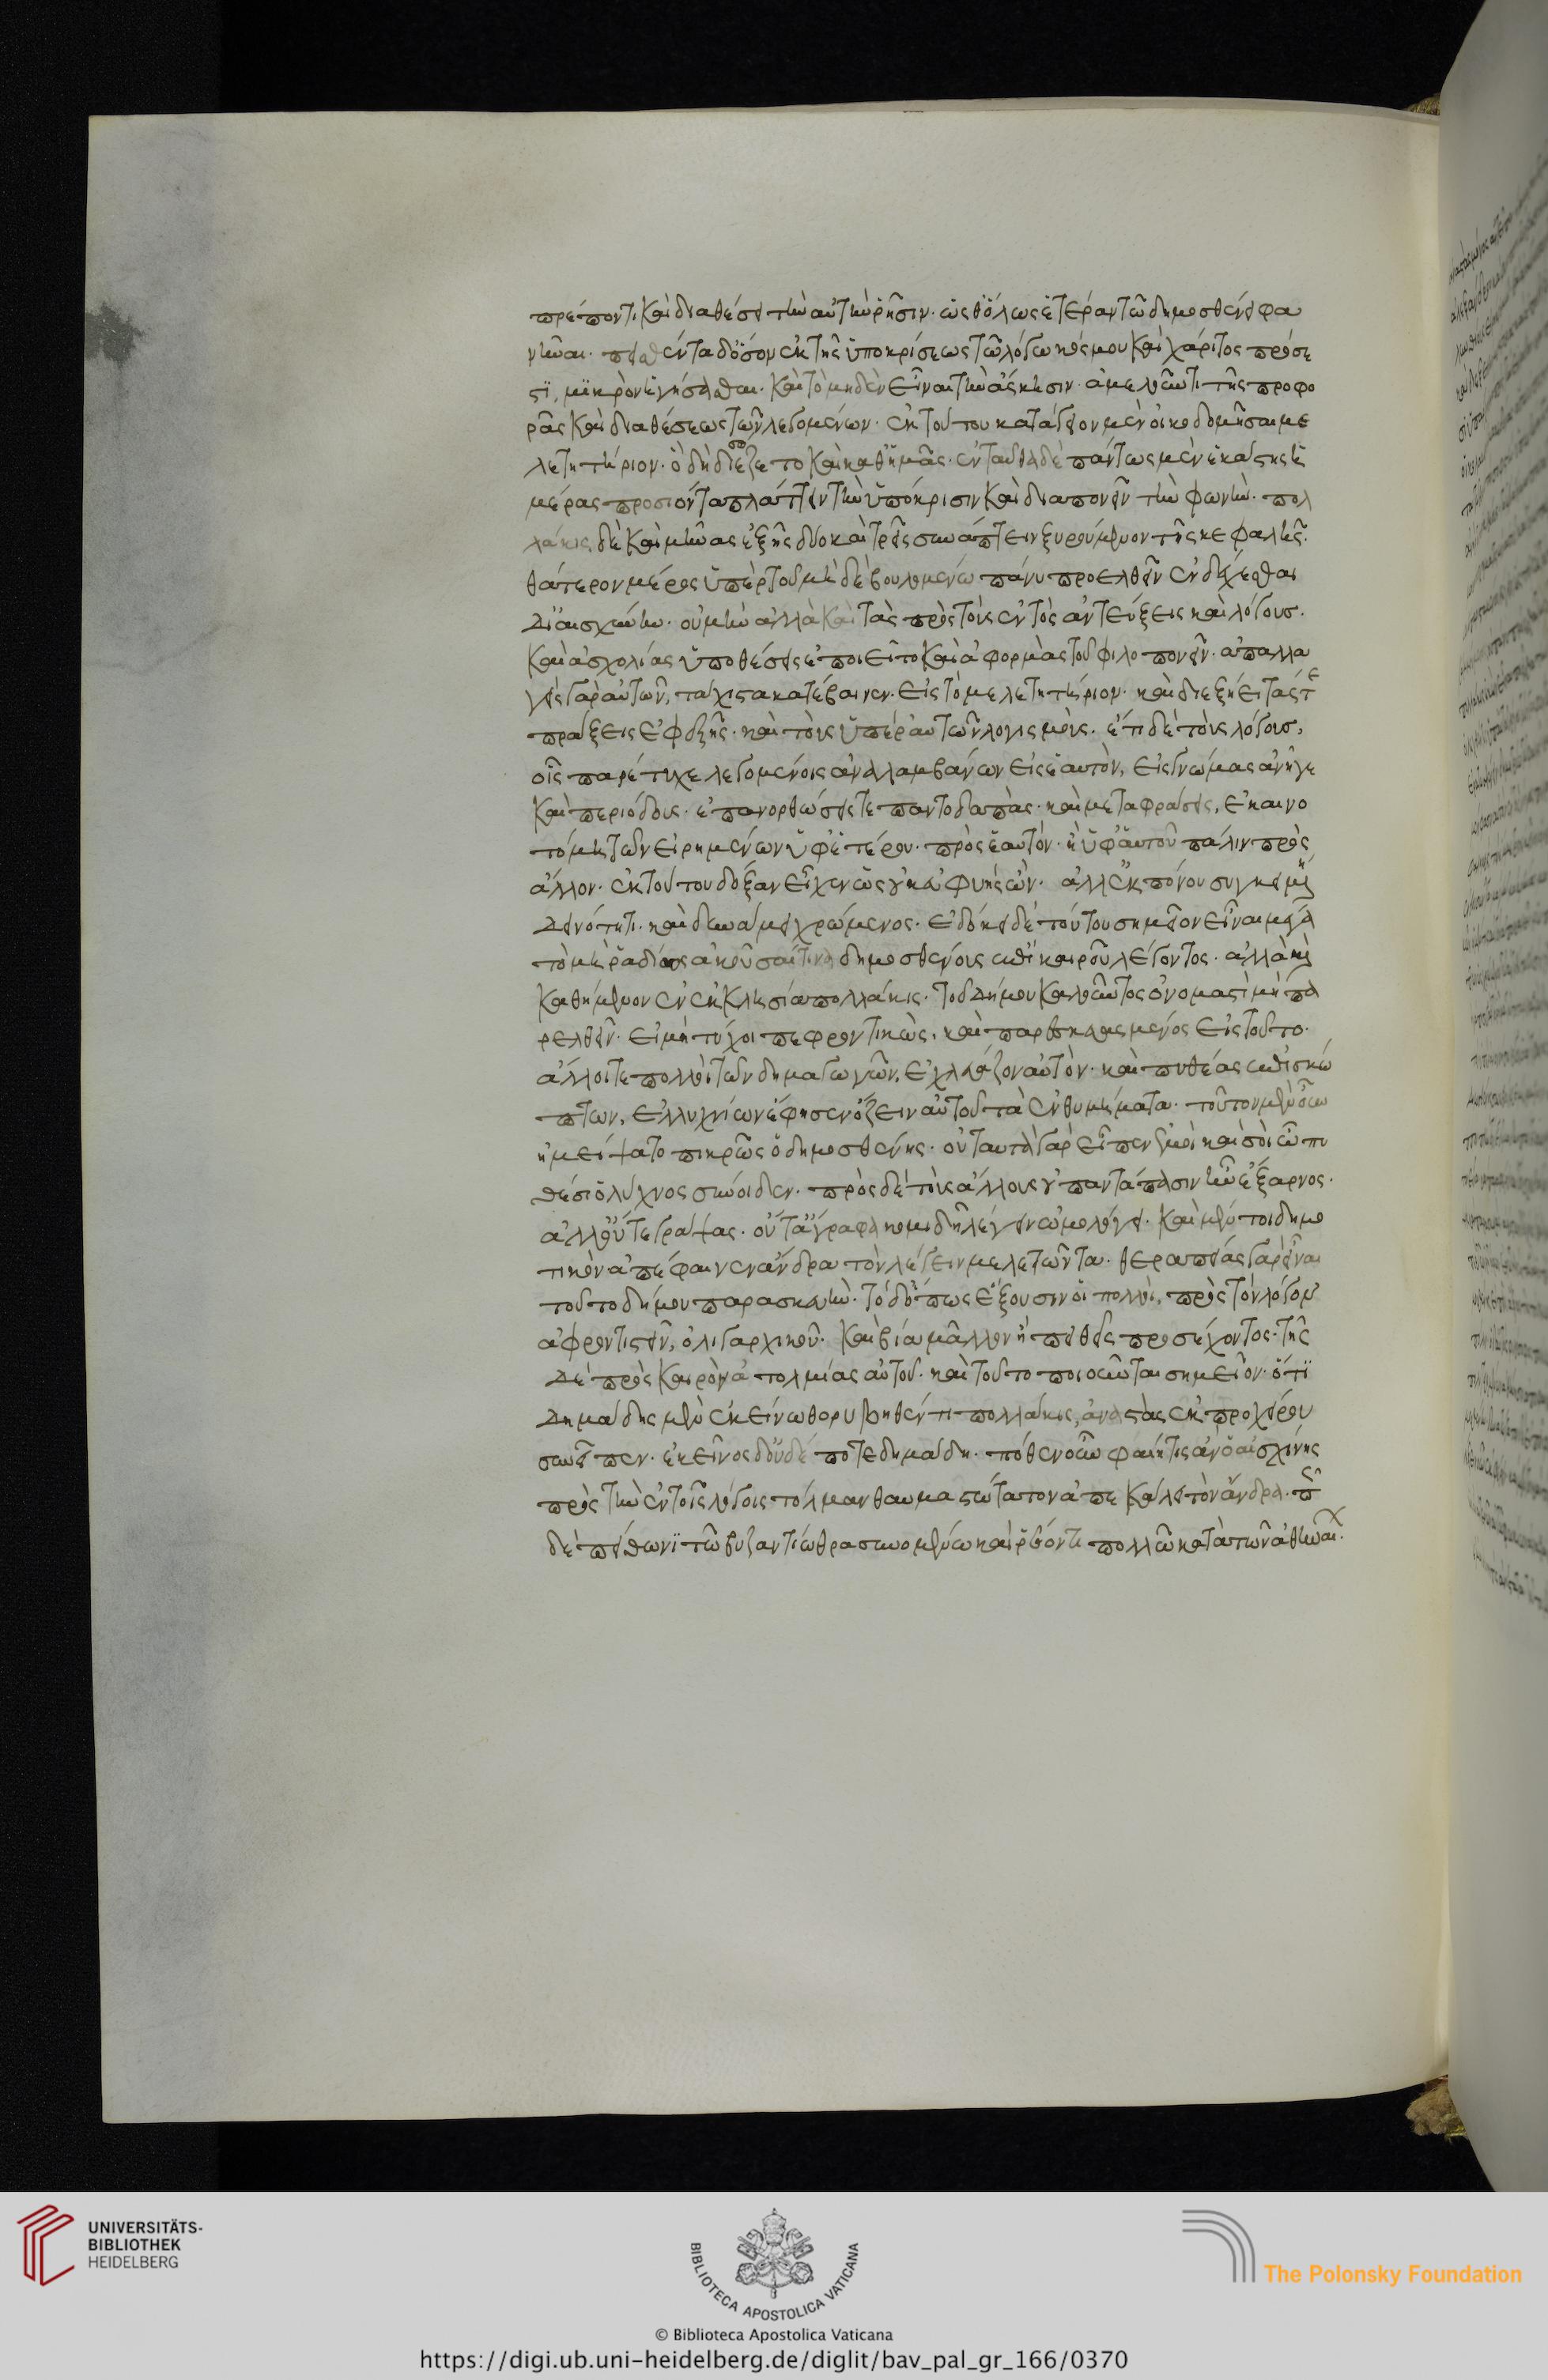 πρέποντι καὶ διαθέσει τὴν αὐτὴν ῥῆσιν. ὡς θ᾽ ὅλως ἑτέραν τῶ δημοσθένει φα
νῆναι. πεισθέντα δ᾽ ὅσον ἐκ τῆς ὑποκρίσεως τῶ λόγω κόσμου καὶ χάριτος πρόσε
στϊ, μϊκρὸν ἡγήσασθαι. καὶ τὸ μηδὲν εἶναι τὴν ἄσκησιν. ἀμελοῦντι τῆς προφο
ρᾶς καὶ διαθέσεως τῶν λεγομένων. ἐκ τούτου κατάγειον μὲν οἰκοδομῆσαι με
λετητήριον. ὃ δὴ διεσώζετο καὶ καθ᾽ ἡμᾶς. ἐνταῦθα δὲ πάντως μὲν ἑκάστης ἡ
μέρας προσιόντα πλάττειν τὴν ὑπόκρισιν καὶ διαπονεῖν τὴν φωνήν. πολ
λάκις δὲ καὶ μῆνας ἑξῆς δύο καὶ τρεῖς συνάπτειν ξυρούμενον τῆς κεφαλῆς.
θάτερον μέρος ὑπὲρ τοῦ μὴ δὲ βουλομένω πάνυ προελθεῖν ἐνδέχεσθαι
δϊ αἰσχύνην. οὐ μὴν ἀλλὰ καὶ τὰς πρὸς τοὺς ἐντὸς ἀντεύξεις καὶ λόγους.
καὶ ἀσχολίας ὑποθέσεις ἐποιεῖτο καὶ ἀφορμὰς τοῦ φιλοπονεῖν. ἀπαλλα
γεὶς γὰρ αὐτῶν, τάχιστα κατέβαινεν. εἰς τὸ μελετητήριον. καὶ διεξήει τάς τε
πράξεις ἐφεξῆς. καὶ τοὺς ὑπὲρ αὐτῶν λογισμούς. ἔτι δὲ τοὺς λόγους,
οἷς παρέτυχε λεγομένοις ἀναλαμβάνων εἰς ἑαυτὸν, εἰς γνώμας ἀνῆγε
καὶ περιόδους. ἐπανορθώσεις τε παντοδαπὰς. καὶ μεταφράσεις, ἐκαινο
τόμει τῶν εἰρημένων ὑφ᾽ ἑτέρου. πρὸς ἑαυτόν. ἢ ὑφ᾽ αὑτοῦ πάλιν πρὸς
ἄλλον. ἐκ τούτου δόξαν εἶχεν ὡς οὐκ εὐφυὴς ὢν. ἀλλ᾽ ἐκ πόνου συγκειμένη
δεινότητι. καὶ δυνάμει χρώμενος. ἐδόκει δὲ τούτου σημεῖον εἶναι μέγα
τὸ μὴ ῥαδίως ἀκοῦσαί τινα δημοσθένους ἐπὶ καιροῦ λέγοντος. ἀλλὰ καὶ
καθήμενον ἐν ἐκκλησία πολλάκις. τοῦ δήμου καλοῦντος ὀνομαστὶ μὴ πα
ρελθεῖν. εἰ μὴ τύχοι πεφροντικὼς, καὶ παρεσκευασμένος εἰς τοῦτο.
ἄλλοι τε πολλοὶ τῶν δημαγωγῶν, ἐχλεύαζον αὐτὸν. καὶ πυθέας ἐπισκώ
πτων, ἐλλυχνίων ἔφησεν ὄζειν αὐτοῦ τὰ ἐνθυμήματα. τοῦτον μὲν οὖν
ἠμείψατο πικρῶς ὁ δημοσθένης. οὐ ταυτὰ γὰρ εἶπεν ἐμοὶ καὶ σοὶ ὦ πυ
θέα ὁ λύχνος σύνοιδεν. πρὸς δὲ τοὺς ἄλλους οὐ παντάπασιν ἦν ἔξαρνος.
ἀλλ᾽ οὔτε γράψας. οὔτ᾽ ἄγραφα κομιδῆ λέγειν ὡμολόγει. καὶ μέν τοι δημο
τικὸν ἀπέφαινεν ἄνδρα τὸν λέγειν μελετῶντα. θεραπείας γὰρ εἶναι
τοῦτο δήμου παρασκευὴν. τὸ δ᾽ ὅπως ἕξουσιν οἱ πολλοὶ, πρὸς τὸν λόγον
ἀφροντιστεῖν, ὀλιγαρχικοῦ. καὶ βία μᾶλλον ἢ πειθοῖ προσέχοντος. τῆς
δὲ πρὸς καιρὸν ἀτολμίας αὐτοῦ. καὶ τοῦτο ποιοῦνται σημεῖον. ὅτϊ
δημάδης μὲν ἐκείνω θορυβηθέντι πολλάκις, ἀναστὰς ἐκ προχείρου
συνεῖπεν. ἐκεῖνος δ᾽ οὐδέποτε δημάδη. πόθεν οὖν φαίη τις ἂν ὁ αἰσχίνης
πρὸς τὴν ἐν τοῖς λόγοις τόλμαν θαυμασιώτατον ἀπεκάλει τὸν ἄνδρα. πῶς
δὲ πύθωνϊ τῶ βυζαντίω θρασυνομένω καὶ ῥέοντι πολλῶ κατὰ τῶν ἀθηναίων.
UNIVERSITÄTS-
BIBLIOTHEK
HEIDELBERG
BIBLIOTECA APOSTOLICA VATICANA
The Polonsky Foundation
© Biblioteca Apostolica Vaticana
https://digi.ub.uni-heidelberg.de/diglit/bav_pal_gr_166/0370